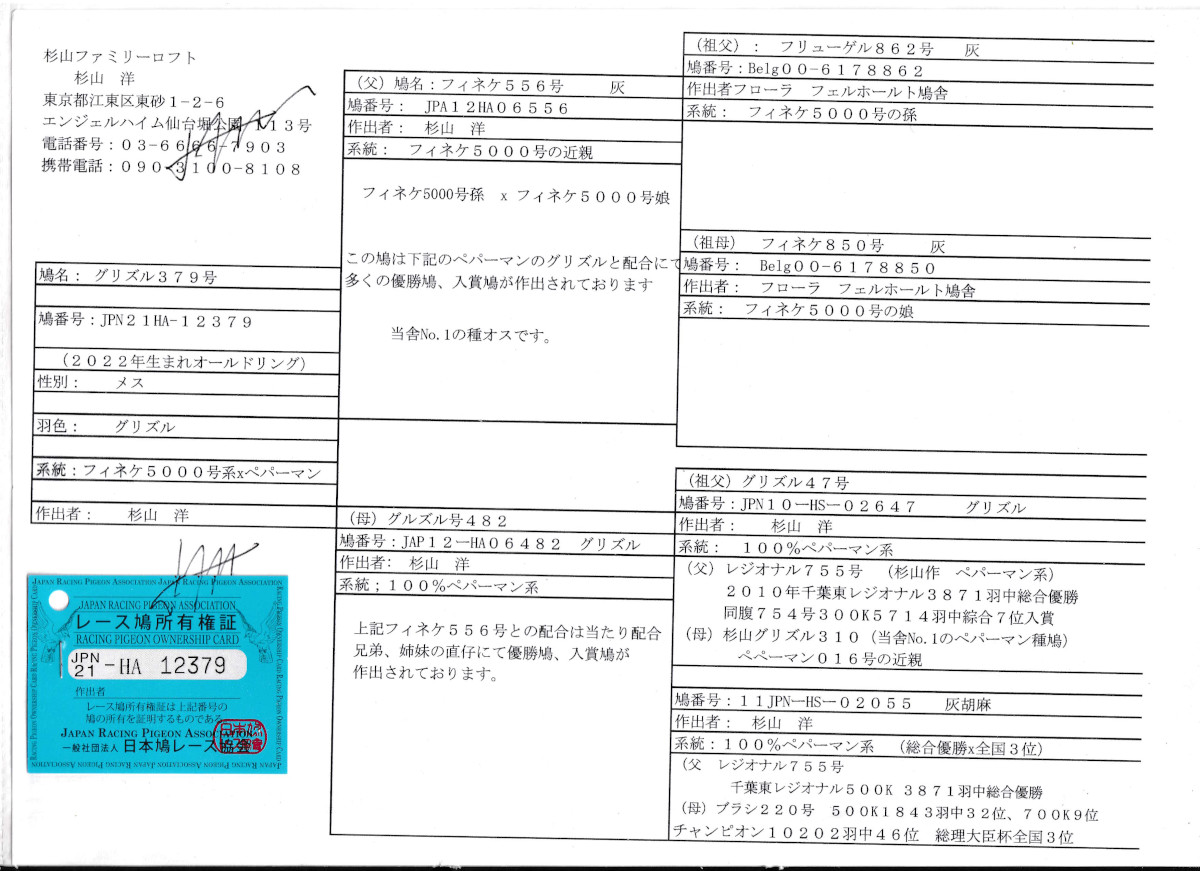 杉山ファミリーロフト
杉山 洋
東京都江東区東砂1-2-6
エンジェルハイム仙台堀公園113号
電話番号：03-6666-7903
携帯電話：090-3100-8108
鳩名： グリズル379号
鳩番号：JPN21HA-12379
（2022年生まれオールドリング）
性別： メス
羽色： グリズル
系統：フィネケ5000号系xペパーマン
作出者： 杉山 洋
JAPAN RACING PIGEON ASSOCIATION
レース鳩所有権証
RACING PIGEON OWNERSHIP CARD
JPN
21 -HA 12379
作出者
レース鳩所有権証は上記番号の
鳩の所有を証明するものである
JAPAN RACING PIGEON ASSOCIATION
一般社団法人 日本鳩レース協会
（父）鳩名：フィネケ556号 灰
鳩番号： JPA12HA06556
作出者： 杉山 洋
系統： フィネケ5000号の近親
フィネケ5000号孫 x フィネケ5000号娘
この鳩は下記のペパーマンのグリズルと配合にて
多くの優勝鳩、入賞鳩が作出されております
当舎No.1の種オスです。
（母）グルズル号482
鳩番号：JAP12ーHA06482 グリズル
作出者： 杉山 洋
系統；100%ペパーマン系
上記フィネケ556号との配合は当たり配合
兄弟、姉妹の直仔にて優勝鳩、入賞鳩が
作出されております。
（祖父）： フリューゲル862号 灰
鳩番号：Belg00-6178862
作出者フローラ フェルホールト鳩舎
系統： フィネケ5000号の孫
（祖母） フィネケ850号 灰
鳩番号： Belg00-6178850
作出者： フローラ フェルホールト鳩舎
系統： フィネケ5000号の娘
（祖父）グリズル47号
鳩番号：JPN10ーHSー02647 グリズル
作出者： 杉山 洋
系統： 100%ペパーマン系
（父）レジオナル755号 （杉山作 ペパーマン系）
2010年千葉東レジオナル3871羽中総合優勝
同腹754号300K5714羽中綜合7位入賞
（母）杉山グリズル310（当舎No.1のペパーマン種鳩）
ペペーマン016号の近親
鳩番号：11JPNーHSー02055 灰胡麻
作出者： 杉山 洋
系統：100%ペパーマン系 （総合優勝x全国3位）
（父 レジオナル755号
千葉東レジオナル500K 3871羽中総合優勝
（母）ブラシ220号 500K1843羽中32位、700K9位
チャンピオン10202羽中46位 総理大臣杯全国3位